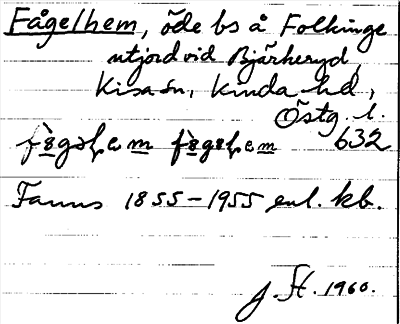 Fågelhem, öde bs å Folkinge
utjord vid Bjärkeryd,
Kisa sn, Kinda hd,
Östg. l.
632
Fanns 1855-1955 enl. kb.
J. St. 1960.